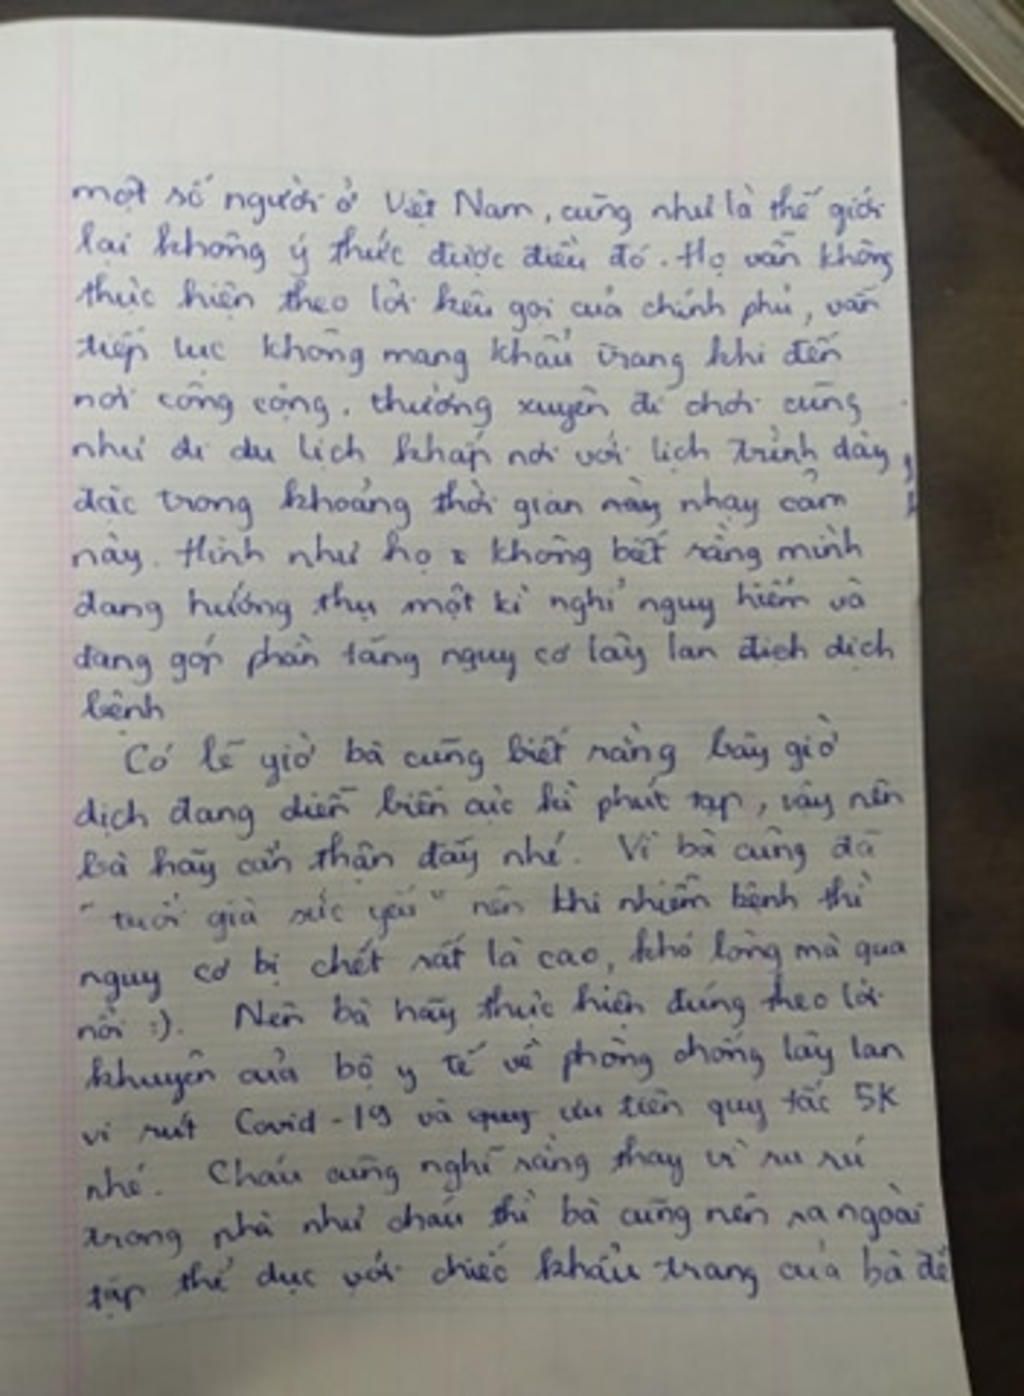 một số người ở Việt Nam, cũng như là thế giới
lại không ý thức được điều đó. Họ vẫn không
thực hiện theo lời kêu gọi của chính phủ, vẫn
tiếp tục không mang khẩu trang khi đến
nơi công cộng, thường xuyên đi chơi cũng
như đi du lịch khắp nơi với lịch trình dày
đặc trong khoảng thời gian này nhạy cảm
này. Hình như họ không biết rằng mình
đang hưởng thụ một kì nghỉ nguy hiểm và
đang góp phần tăng nguy cơ lây lan dịch
bệnh
Có lẽ giờ bà cũng biết rằng bây giờ
dịch đang diễn biến cực kì phức tạp, vậy nên
bà hãy cẩn thận đấy nhé. Vì bà cũng đã
"tuổi già sức yếu" nên khi nhiễm bệnh thì
nguy cơ bị chết rất là cao, khó lòng mà qua
nổi :). Nên bà hãy thực hiện đúng theo lời
khuyên của bộ y tế về phòng chống lây lan
vi rút Covid-19 và ưu tiên quy tắc 5K
nhé. Cháu cũng nghĩ rằng thay vì ru rú
trong nhà như cháu thì bà cũng nên ra ngoài
tập thể dục với chiếc khẩu trang của bà để